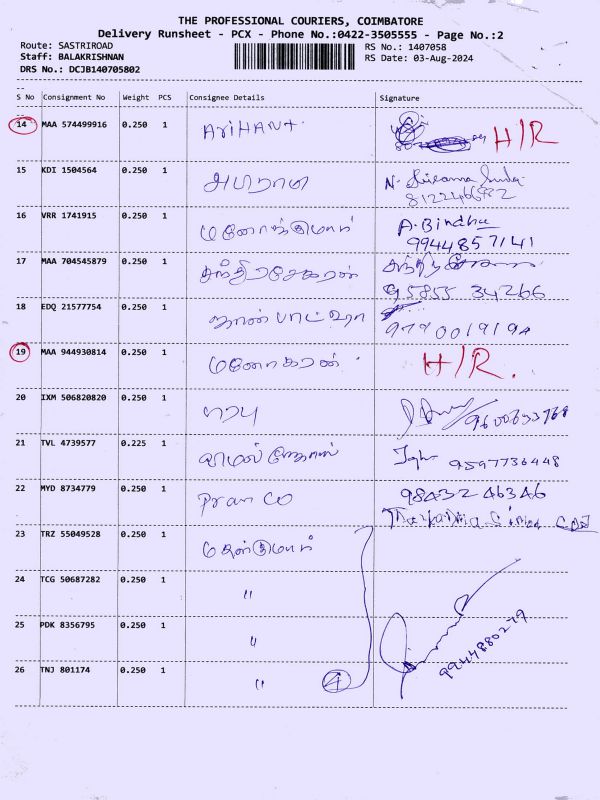 THE PROFESSIONAL COURIERS, COIMBATORE
Delivery Runsheet - PCX - Phone No.:0422-3505555 - Page No.:2
Route: SASTRIROAD
RS No.: 1407058
Staff: BALAKRISHNAN
RS Date: 03-Aug-2024
DRS No.: DCJB140705802
S No Consignment No Weight PCS Consignee Details Signature
14 MAA 574499916 0.250 1 AriHAnt H/R
15 KDI 1504564 0.250 1 அபிராமி N.
16 VRR 1741915 0.250 1 மனோஜ்குமார் A. Bindhu
9944857141
17 MAA 704545879 0.250 1 சந்திரசேகரன்
95855 34266
18 EDQ 21577754 0.250 1
19 MAA 944930814 0.250 1 மனோகரன் H/R.
20 IXM 506820820 0.250 1
21 TVL 4739577 0.225 1 9597736448
22 MYD 8734779 0.250 1 Pram CO 98432 46346
23 TRZ 55049528 0.250 1
24 TCG 50687282 0.250 1 "
25 PDK 8356795 0.250 1 "
9944880279
26 TNJ 801174 0.250 1 " 4